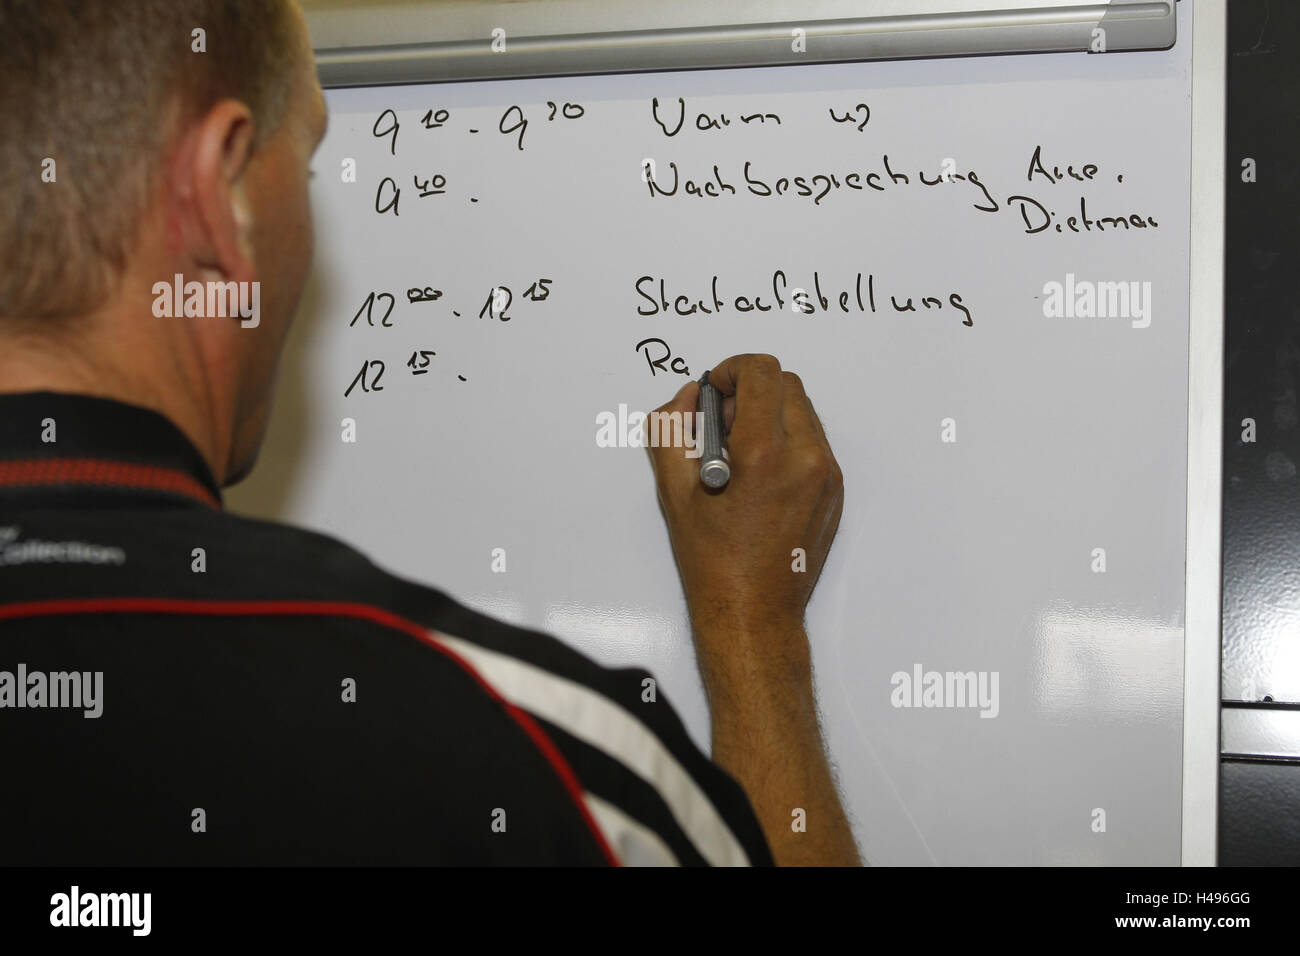 9 10 - 9 30 Warm up
9 40 - Nachbesprechung Arne,
Dietmar
12 00 - 12 15 Startaufstellung
12 15 - Ra
Collection
alamy stock photo
alamy
Image ID: H496GG
www.alamy.com